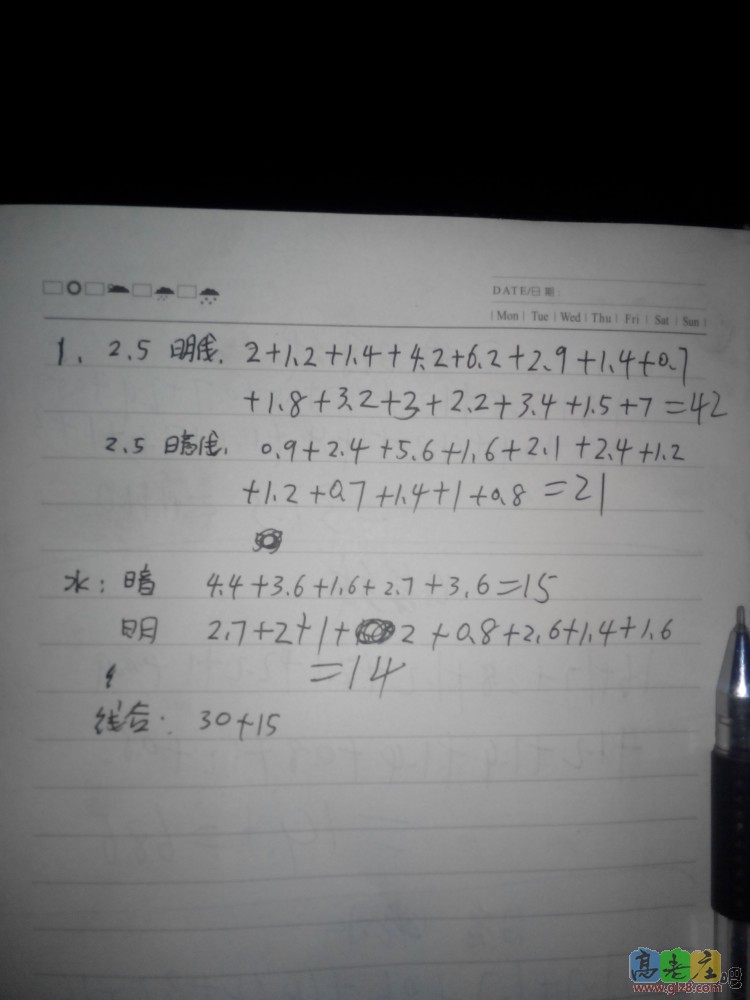 DATE/日期:
Mon Tue Wed Thu Fri Sat Sun
1. 2.5 明线. 2+1.2+1.4+4.2+6.2+2.9+1.4+0.7
+1.8+3.2+3+2.2+3.4+1.5+7=42
2.5 暗线. 0.9+2.4+5.6+1.6+2.1+2.4+1.2
+1.2+0.7+1.4+1+0.8=21
水: 暗 4.4+3.6+1.6+2.7+3.6=15
明 2.7+2+1+2+0.8+2.6+1.4+1.6
=14
线合: 30+15
高老庄吧
www.glz8.com